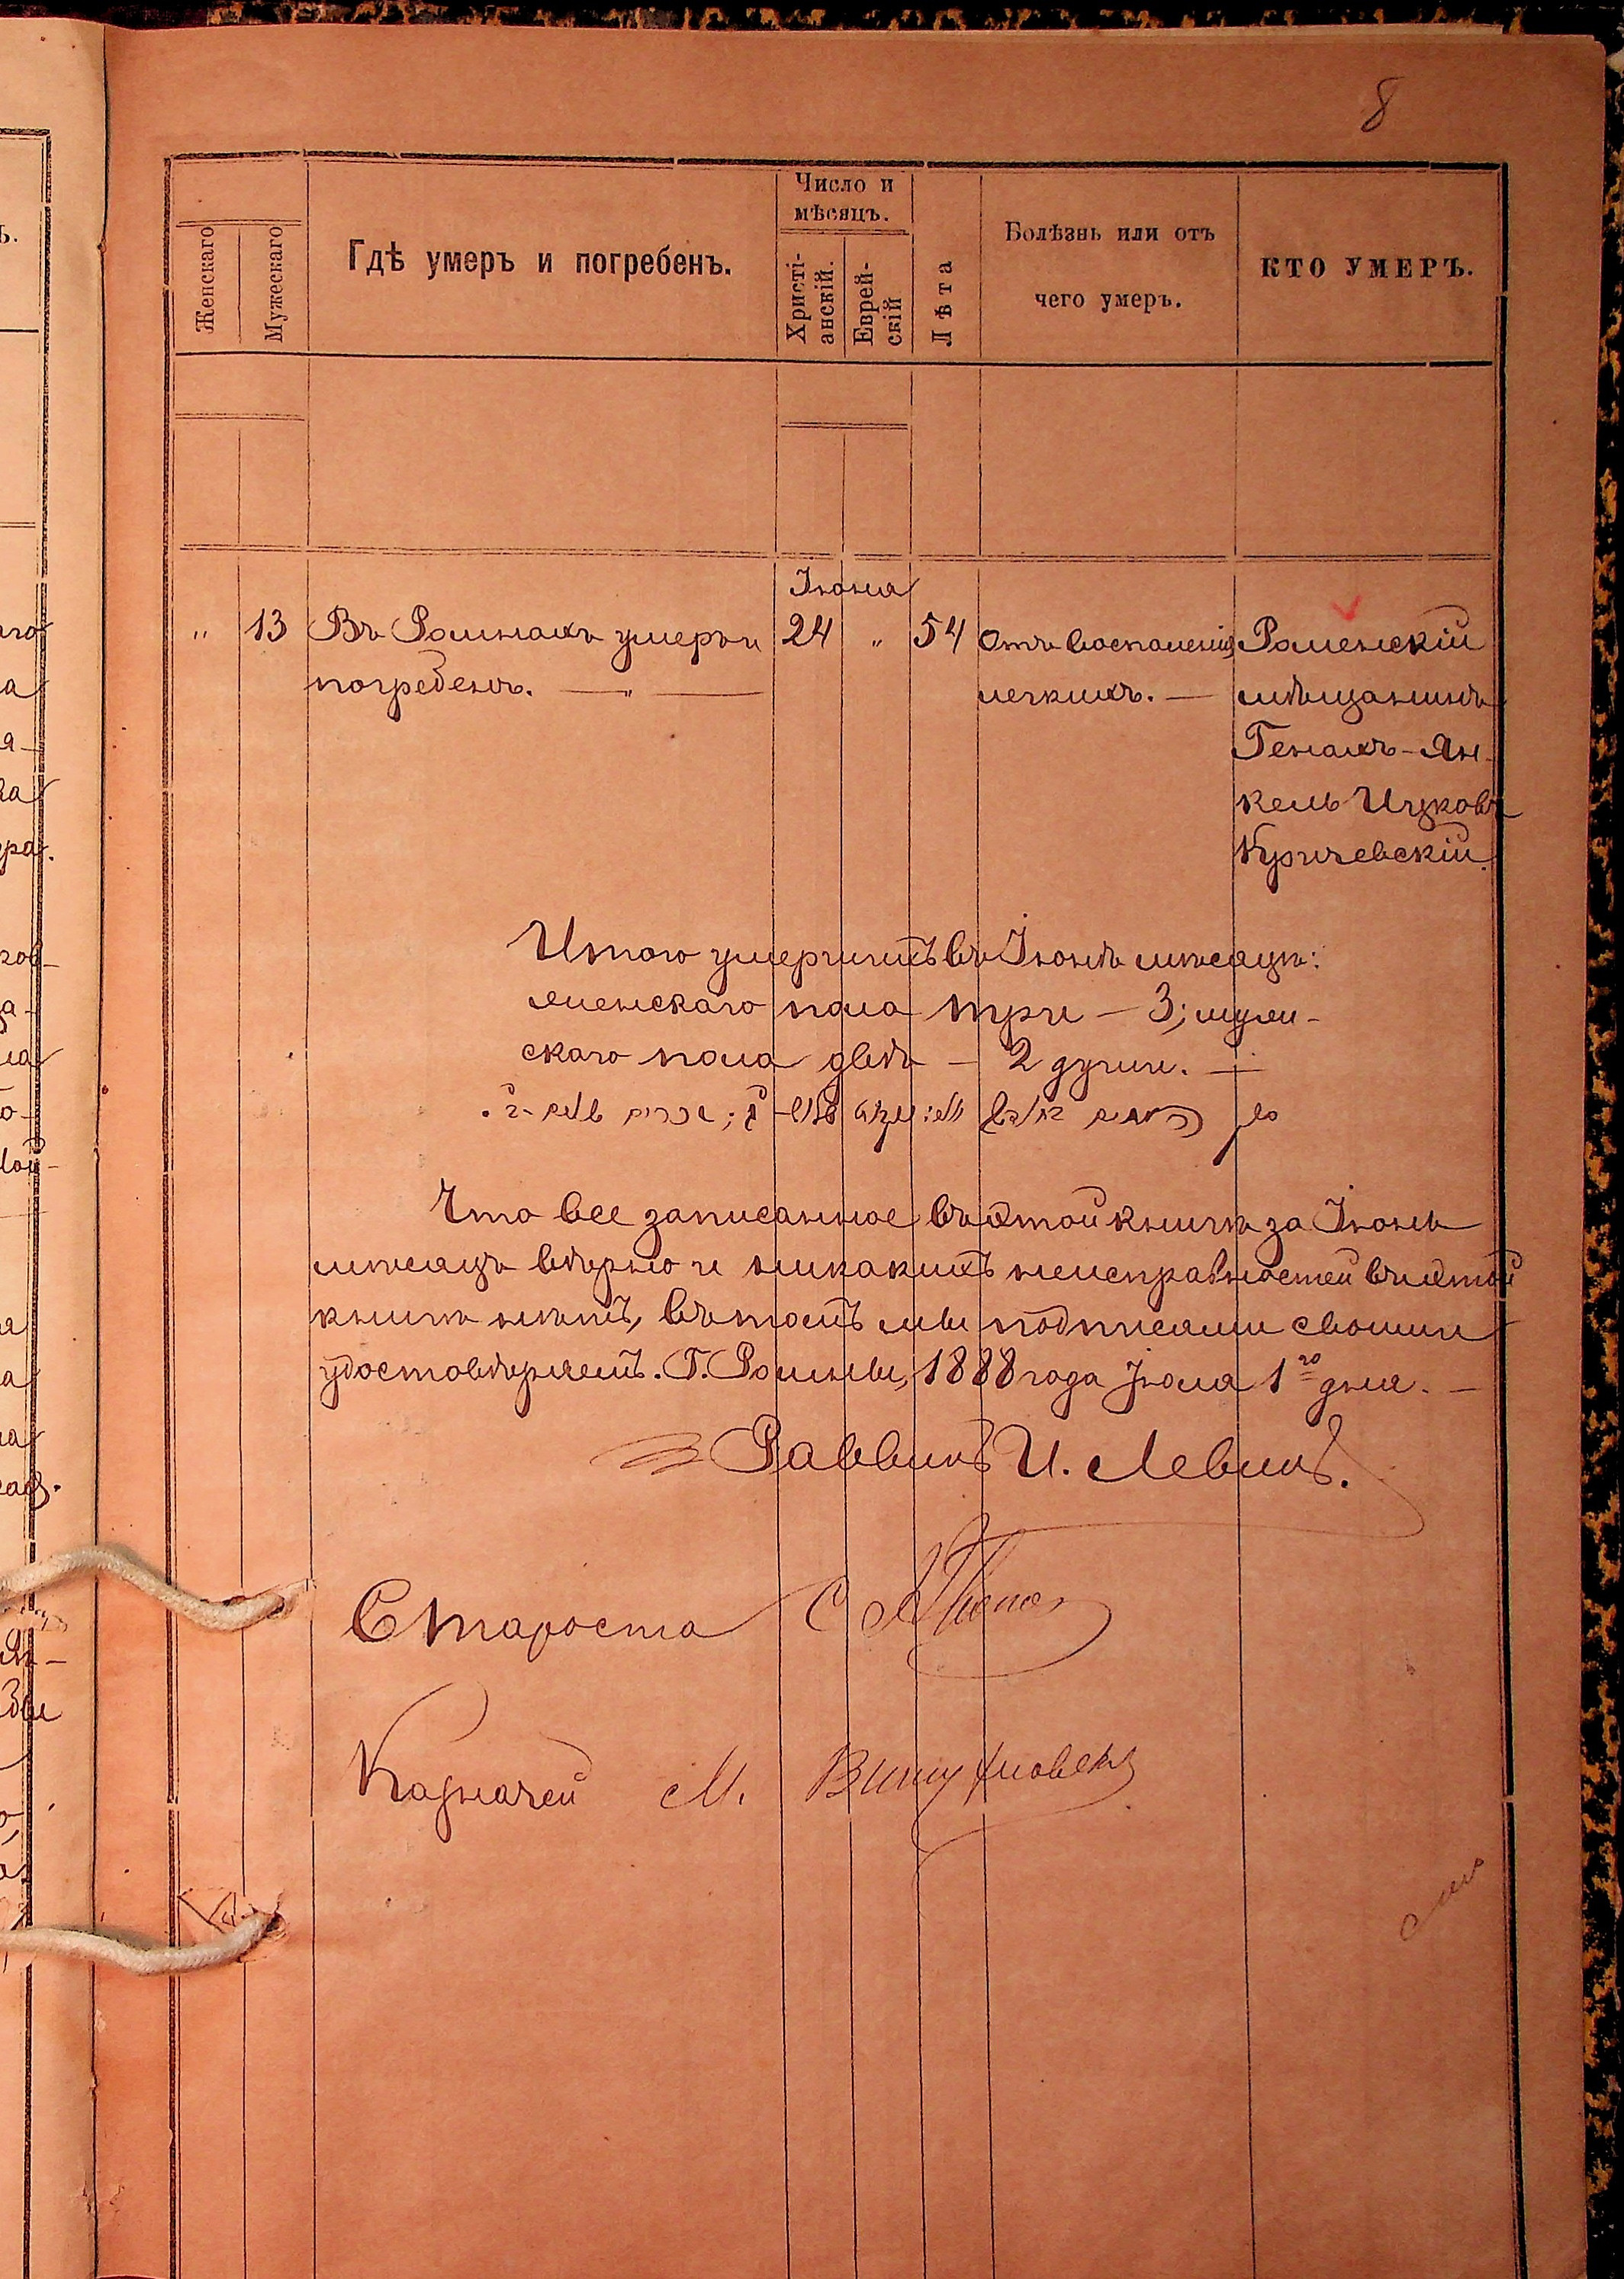 8
Женскаго
Мужескаго
Гдѣ умеръ и погребенъ.
Число и
мѣсяцъ.
Христі-
анскій.
Еврей-
скій
Лѣта
Болѣзнь или отъ
чего умеръ.
КТО УМЕРЪ.
Іюня
" 13 Въ Ромнахъ умеръ и 24 " 54 Отъ воспаленія Роменскій
погребенъ. — " — легкихъ. — мѣщанинъ
Генахъ-Ян-
кель Ицковъ
Кричевскій.
Итого умершихъ въ Іюнѣ мѣсяцѣ:
женскаго пола три — 3; муж-
скаго пола двѣ — 2 души. —
Что все записанное въ этой книгѣ за Іюнь
мѣсяцъ вѣрно и никакихъ неисправностей въ этой
книгѣ нѣтъ, въ томъ мы подписями своими
удостовѣряемъ. Г. Ромны, 1888 года Іюля 1го дня. —
Раввинъ И. Левинъ.
Староста С
Казначей М.